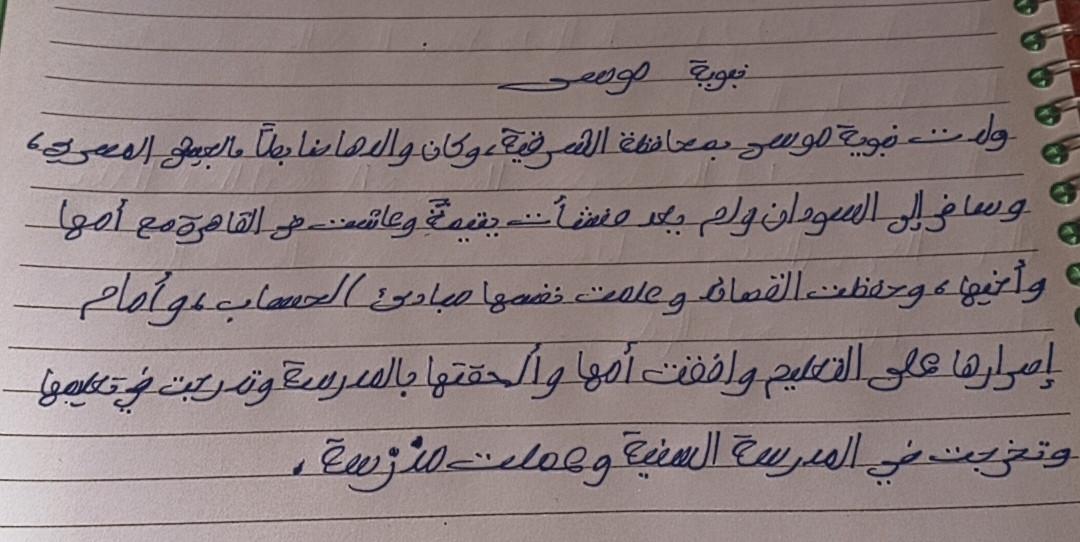 نبوية موسى
ولدت نبوية موسى بمحافظة الشرقية، وكان والدها ضابطاً بالجيش المصرى،
وسافر إلى السودان ولم يعد فنشأت يتيمة وعاشت في القاهرة مع أمها
وأخيها، وحفظت القصائد وعلمت نفسها مبادئ الحساب، وأمام
إصرارها على التعليم وافقت أمها وألحقتها بالمدرسة وتدرجت في تعليمها
وتخرجت في المدرسة السنية وعملت مدرسة.